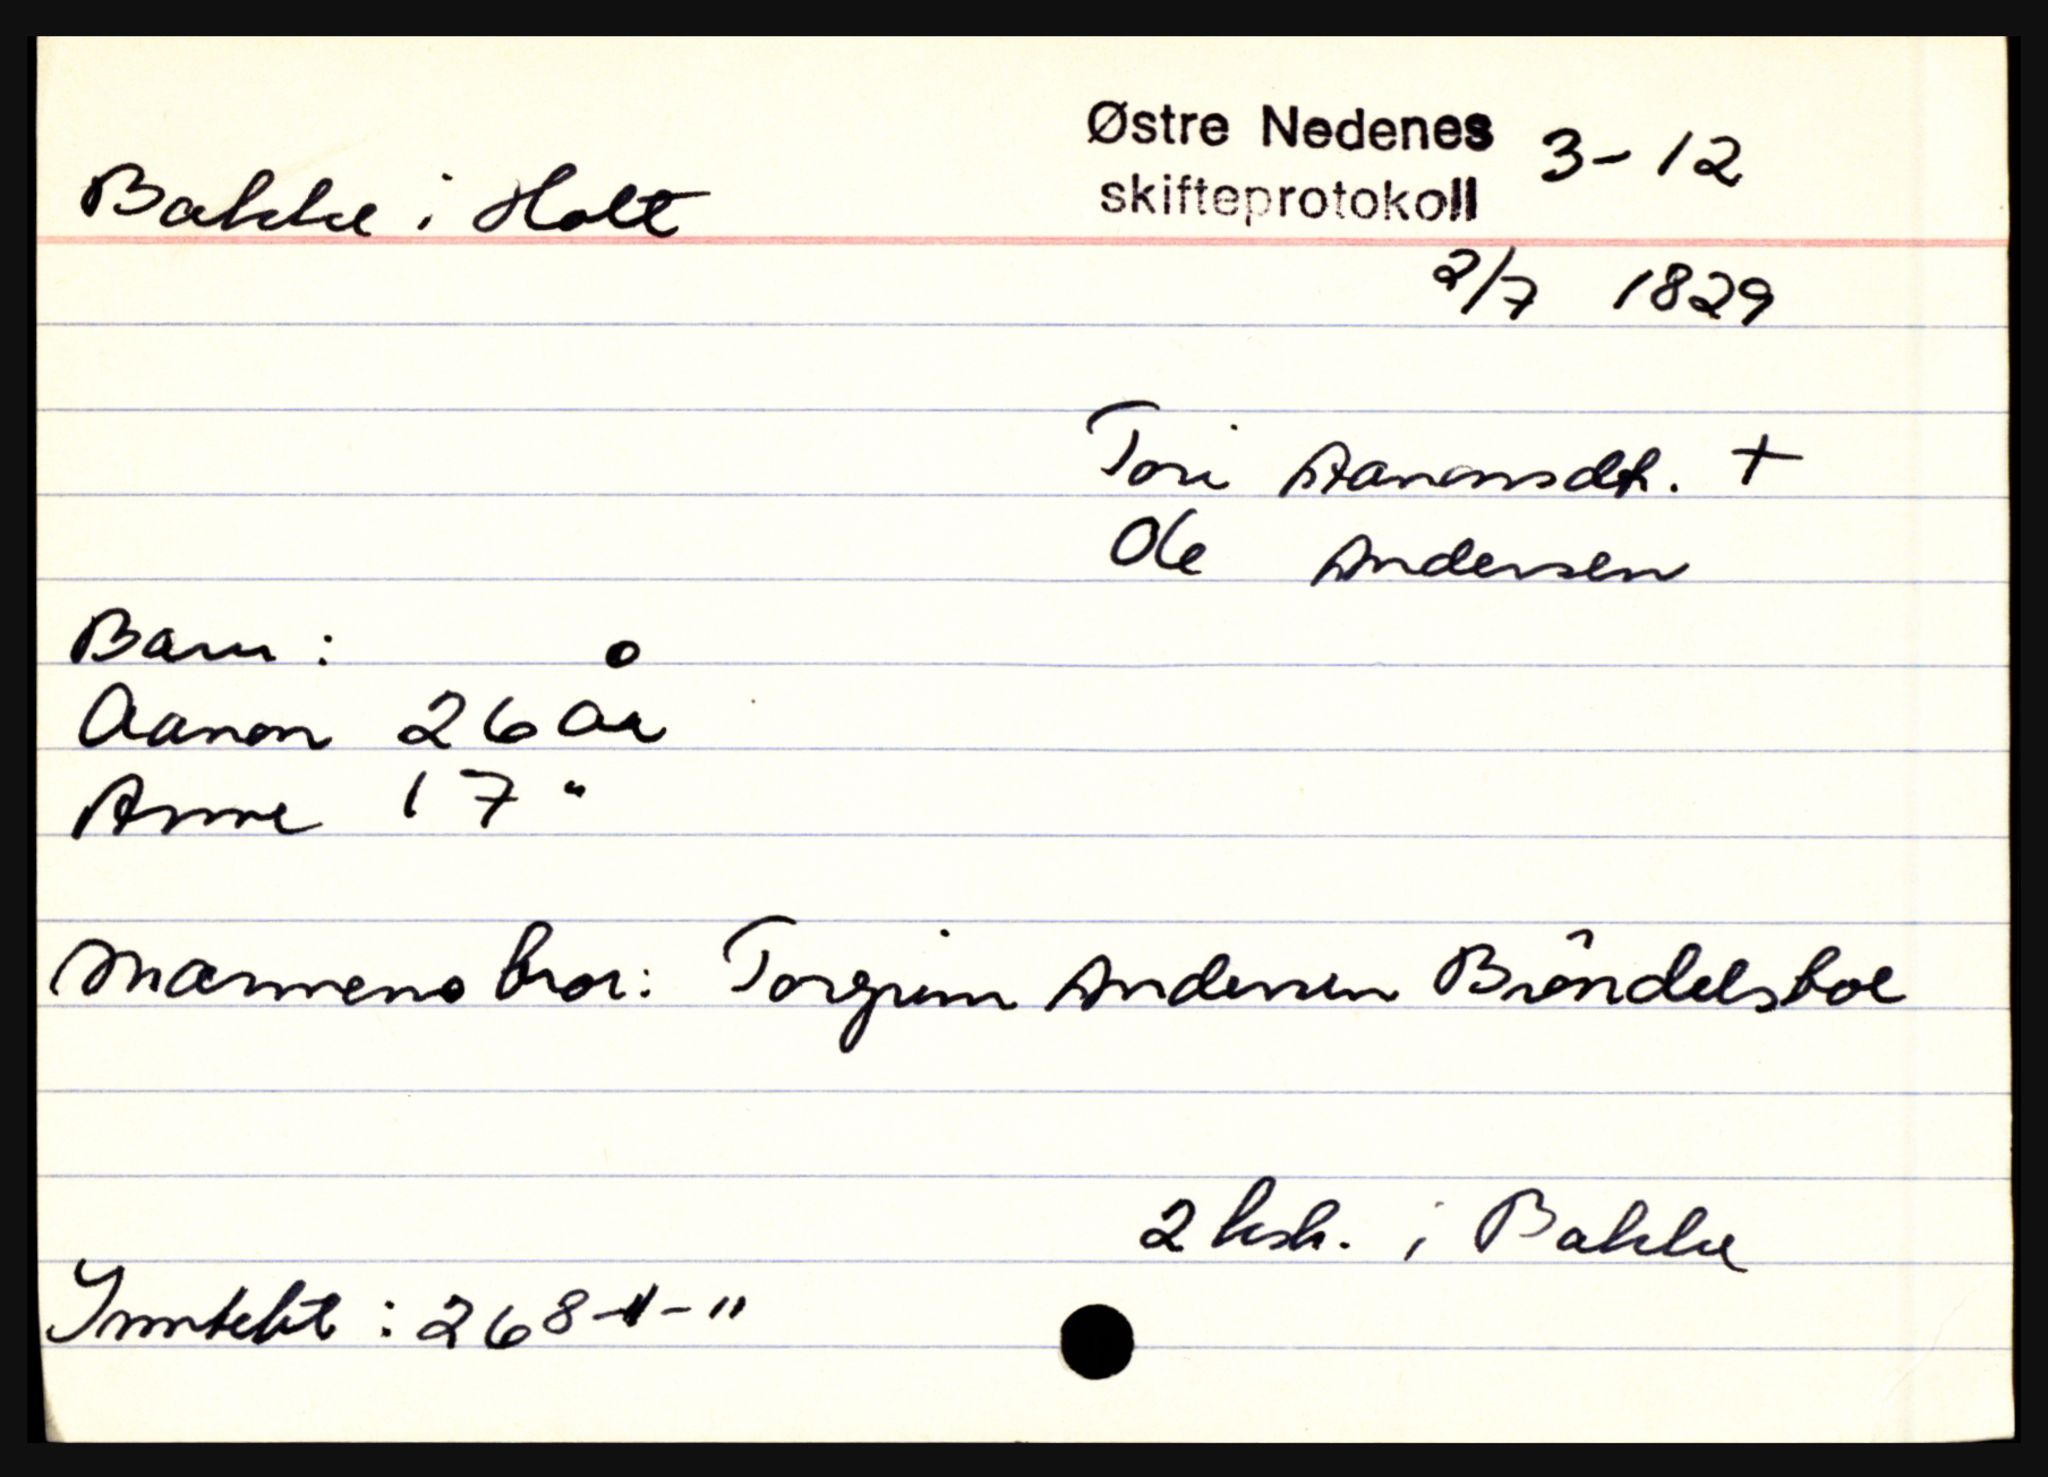 Østre Nedenes 3-12
Bakke i Holt skifteprotokoll
2/7 1829
Tori Aanonsdt. +
Ole Andersen
Barn:
Aanon 26 år
Anne 17 "
Mannens bror: Torgrim Andersen Bröndelsboe
2 hsh. i Bakke
Inntekt: 268-"-"